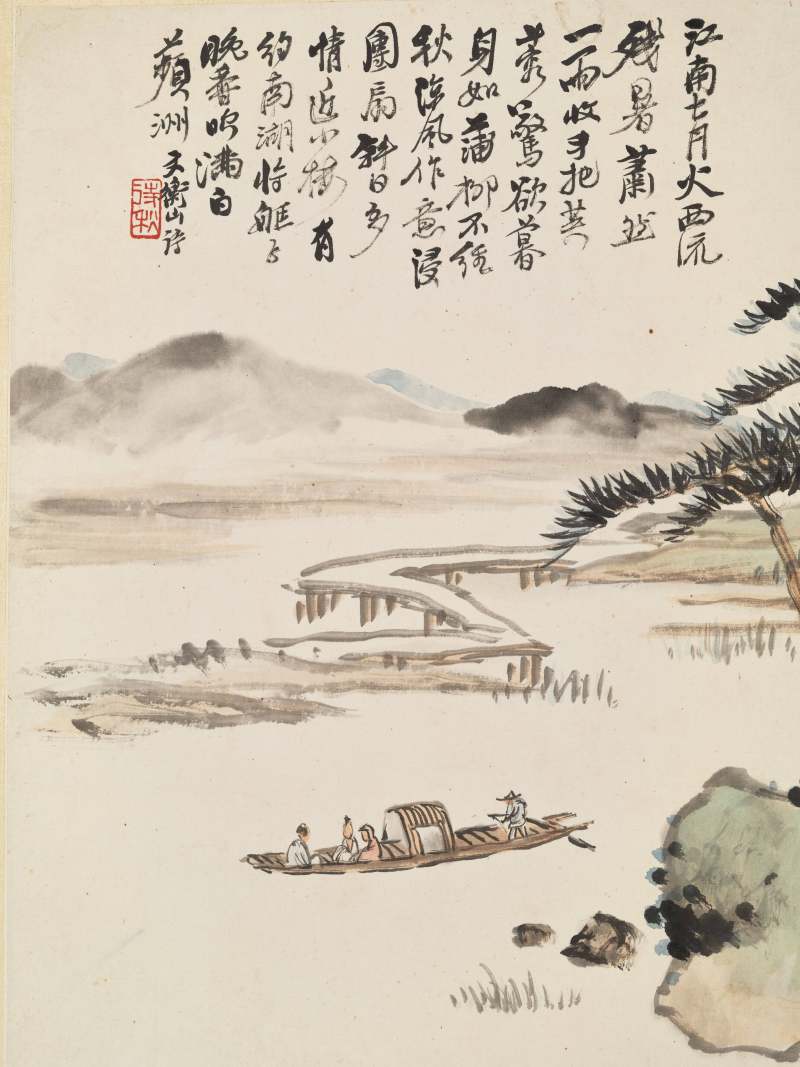 江南七月火西流
殘暑蕭然
一雨收手把芙
蓉驚欲暮
身如蒲柳不經
秋涼風作意侵
團扇斜日多
情近小樓有
約南湖將艇子
晚香吹滿白
蘋洲 文衡山詩
待秋